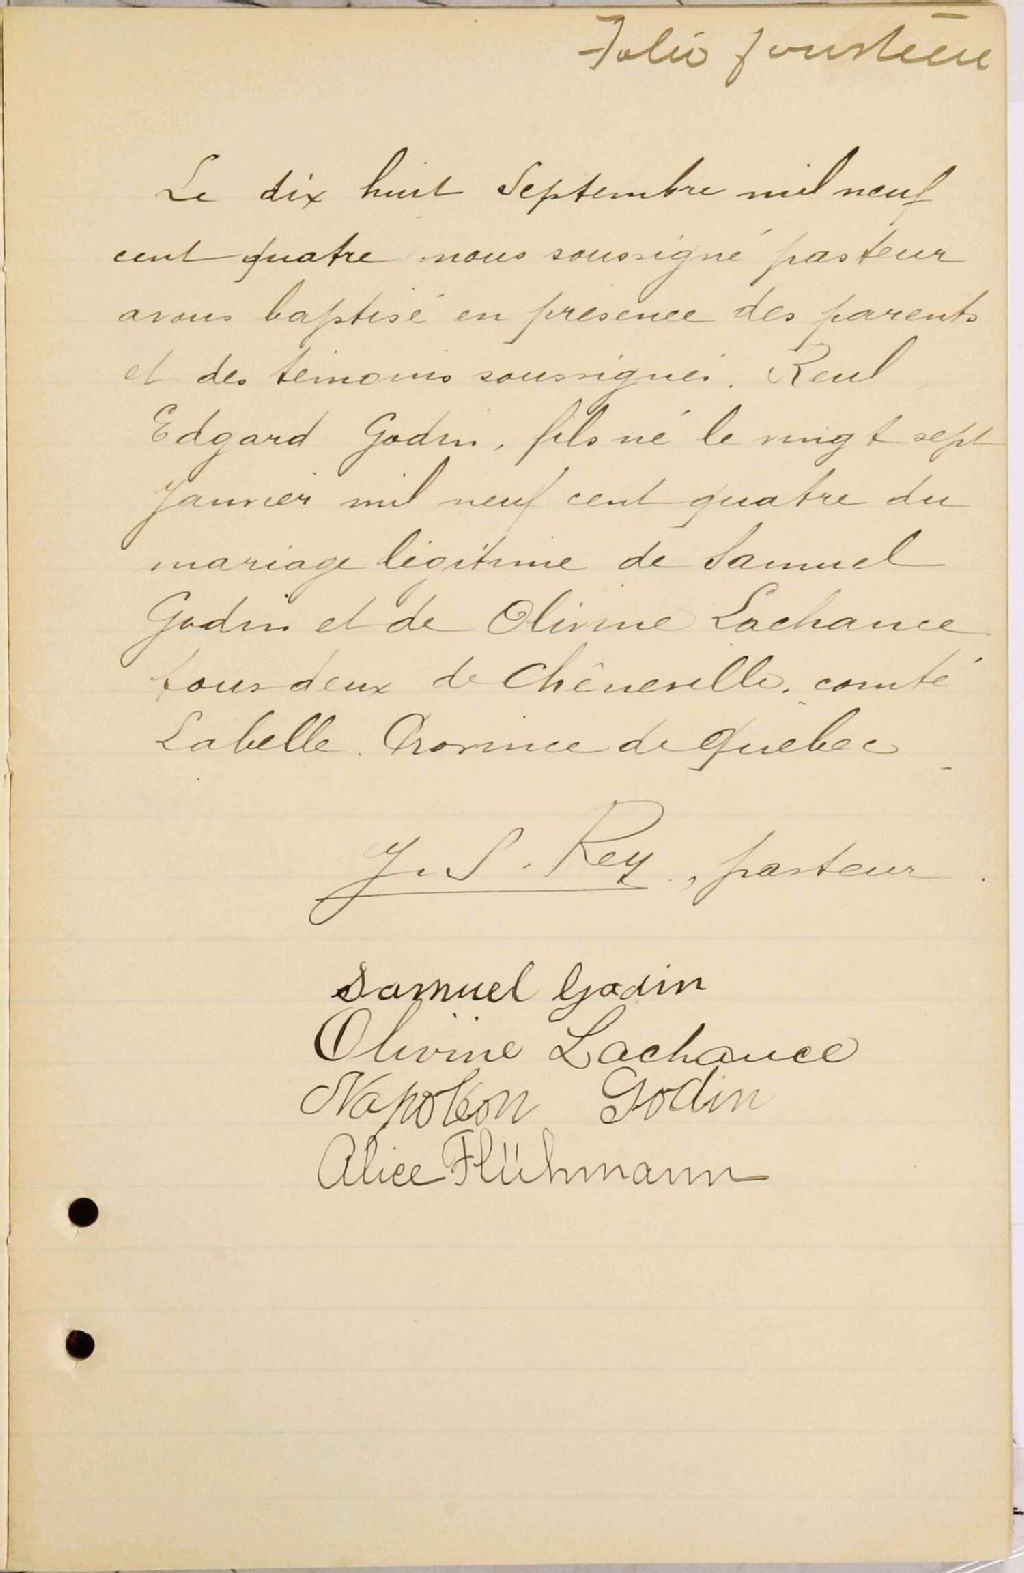 Folio fourteen
Le dix huit Septembre mil neuf
cent quatre nous soussigné pasteur
avons baptisé en présence des parents
et des témoins soussignés. Reul
Edgard Godin, fils né le vingt sept
Janvier mil neuf cent quatre du
mariage légitime de Samuel
Godin et de Olivine Lachance
tous deux de Chêneville, comté
Labelle. Province de Québec
J. S. Rey, pasteur.
Samuel Godin
Olivine Lachance
Napoleon Godin
Alice Flühmann